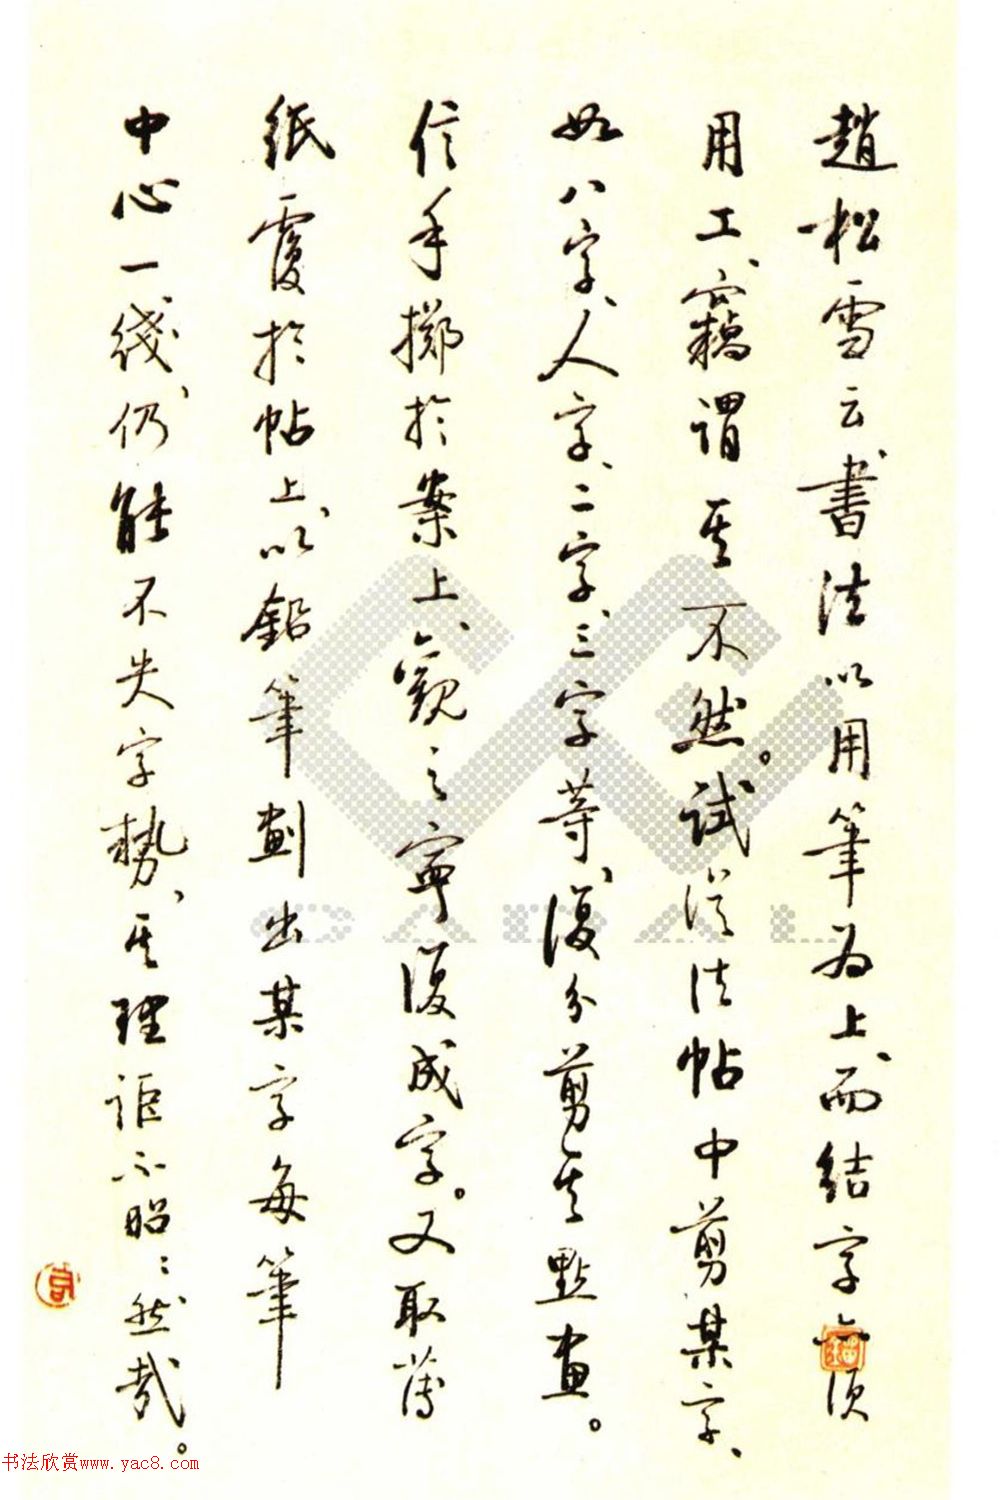 趙松雪云、書法以用筆為上、而結字亦須
用工、竊謂其不然。試從法帖中剪某字、
如八字、人字、二字、三字等、復分剪其點畫。
信手擲於案上、觀之寧復成字。又取薄
紙覆於帖上、以鉛筆劃出某字每筆
中心一綫、仍能不失字勢、其理詎不昭〻然哉。
书法欣赏www.yac8.com
CADAL